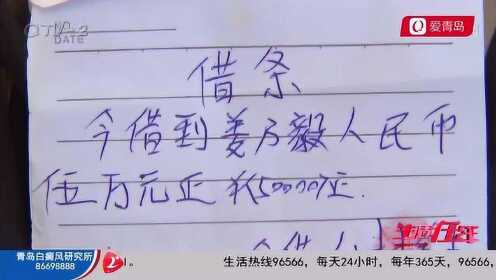 QTV-2
爱青岛
NO.
DATE
借条
今借到姜乃毅人民币
伍万元正 ¥50000元正.
今借人
生活在线
青岛白癜风研究所
86698888
生活热线96566，每天24小时，每年365天，96566，